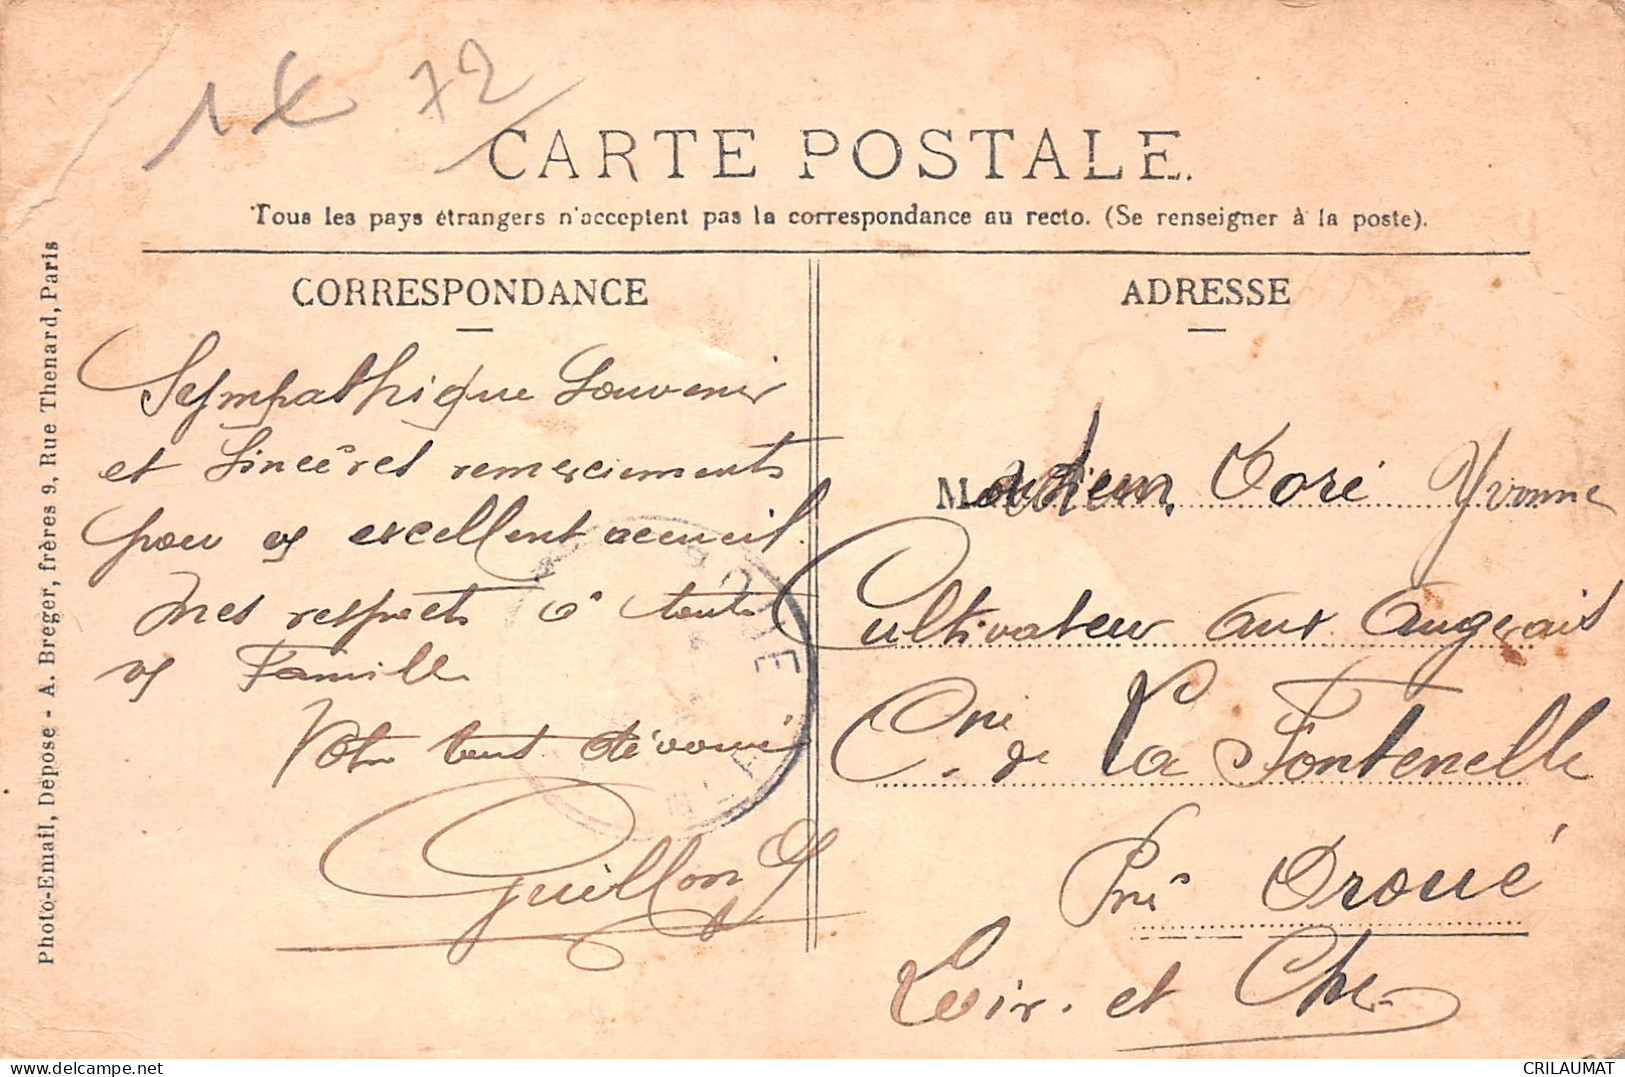 1€ 72
CARTE POSTALE.
Tous les pays étrangers n'acceptent pas la correspondance au recto. (Se renseigner à la poste).
CORRESPONDANCE
Sympathique Souvenir
et Sincères remerciements
pour vs excellent accueil.
Mes respects à toute
vs Famille
Votre tout dévoué
Guillon
ADRESSE
Doré Yvonne
Cultivateur aux Augerais
Cne de La Fontenelle
Près Droué
Loir. et Cher
Photo-Email, Déposé - A. Breger, frères 9, Rue Thenard, Paris
CRILAUMAT